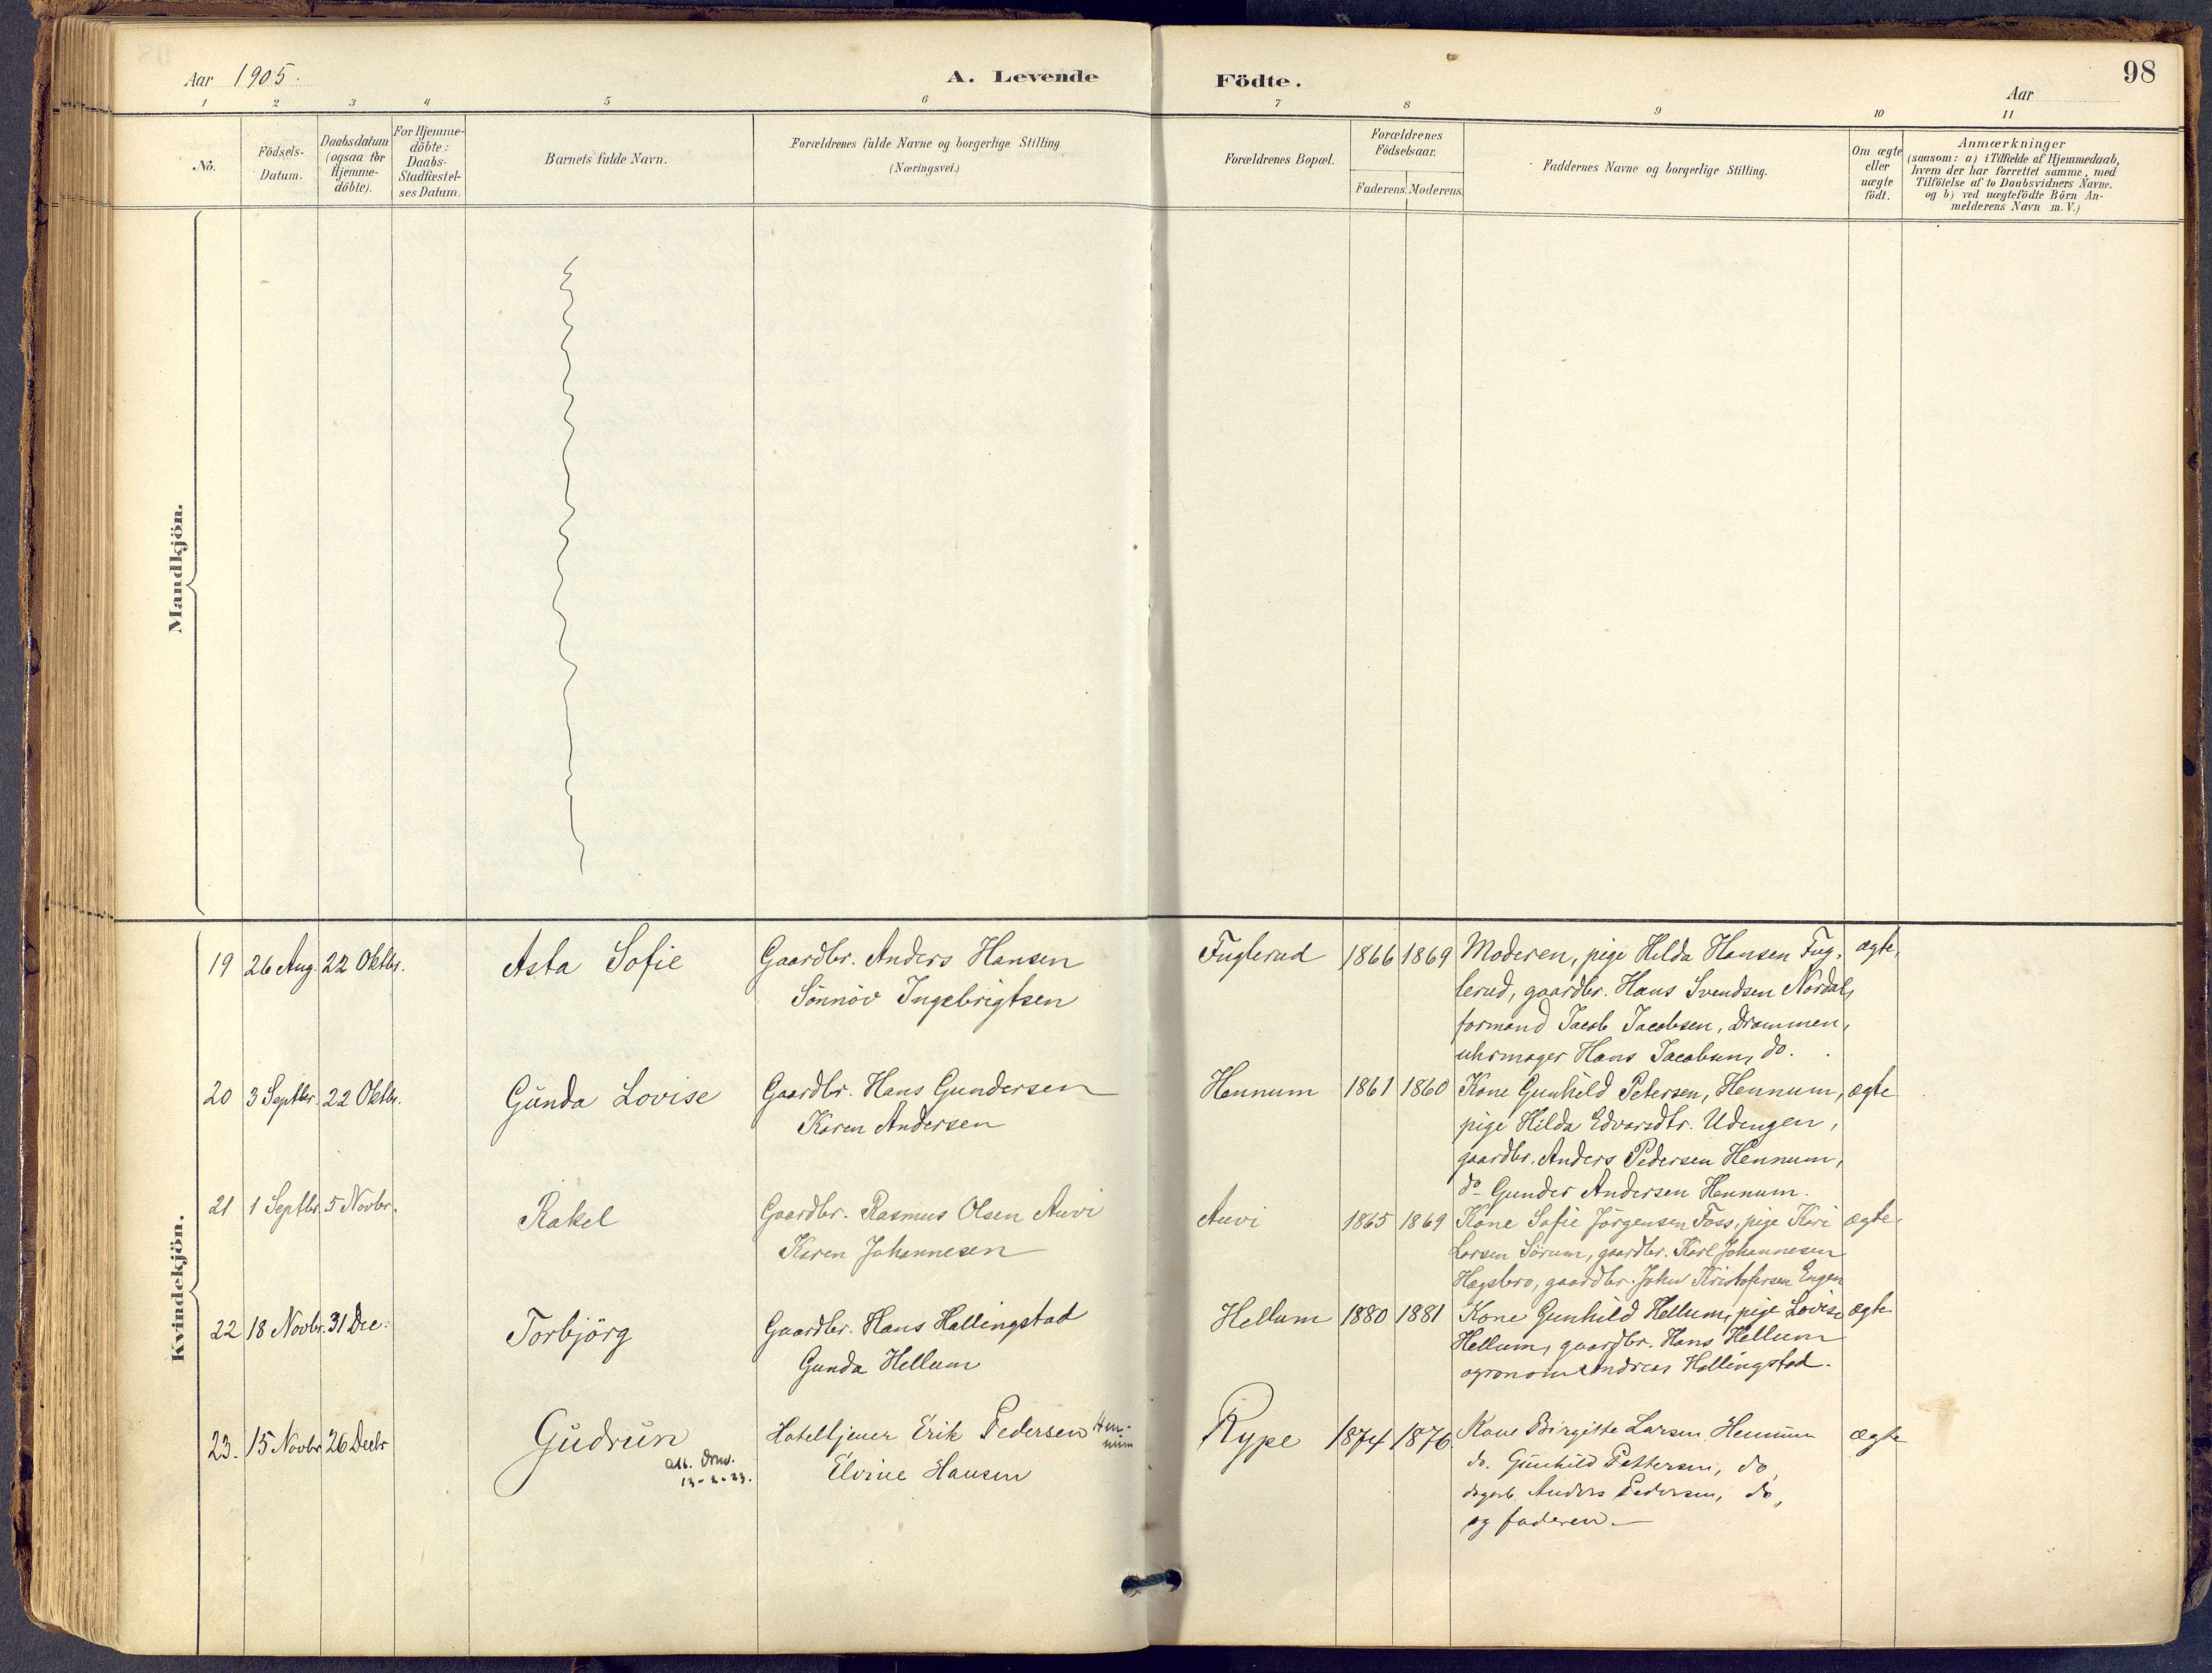 Aar 1905.
A. Levende Födte.
Aar
98
1 2 3 4 5 6 7 8 9 10 11
No.
Födsels-Datum.
Daabsdatum (ogsaa for Hjemme-döbte).
For Hjemme-döbte: Daabs-Stadfæstel-ses Datum.
Barnets fulde Navn.
Forældrenes fulde Navne og borgerlige Stilling.
(Næringsvei.)
Forældrenes Bopæl.
Forældrenes Födselsaar.
Faderens. Moderens.
Faddernes Navne og borgerlige Stilling.
Om ægte eller uægte födt.
Anmærkninger
(saasom: a) i Tilfælde af Hjemmedaab,
hvem der har forrettet samme, med
Tilföielse af to Daabsvidners Navne.
og b) ved uægtefödte Börn An-
melderens Navn m. V.)
Mandkjön.
Kvindekjön.
19 26 Aug. 22 Oktbr. Asta Sofie Gaardbr. Anders Hansen Fuglerud 1866 1869 Moderen, pige Hilda Hansen Fug- ægte.
Sönnöv Ingebrigtsen lerud, gaardbr. Hans Svendsen Nordal,
formand Jacob Jacobsen, Drammen,
uhrmager Hans Jacobsen, do.
20 3 Septbr. 22 Oktbr. Gunda Lovise Gaardbr. Hans Gundersen Hennum 1861 1860 Kone Gunhild Petersen, Hennum, ægte
Karen Andersen pige Hilda Edvardtr. Udengen,
gaardbr. Anders Pedersen Hennum,
do Gunder Andersen Hennum.
21 1 Septbr. 5 Novbr. Rakel Gaardbr. Rasmus Olsen Auvi Auvi 1865 1869 Kone Sofie Jörgensen Foss, pige Kari ægte.
Karen Johannesen Larsen Sörum, gaardbr. Karl Johannesen
Hagsbro, gaardbr. John Kristofersen Engen
22 18 Novbr. 31 Dec. Torbjörg Gaardbr. Hans Hallingstad Hellum 1880 1881 Kone Gunhild Hellum, pige Lovise ægte
Gunda Hellum Hellum, gaardbr. Hans Hellum
agronom Andreas Hallingstad.
23. 15 Novbr 26 Decbr Gudrun Hoteltjener Erik Pedersen Hen-num Rype 1874 1876 Kone Birgitte Larsen Hennum ægte
att. 13-2-23. Elvine Hansen do. Gunhild Pettersen, do,
dagarb. Anders Pedersen, do,
og faderen.